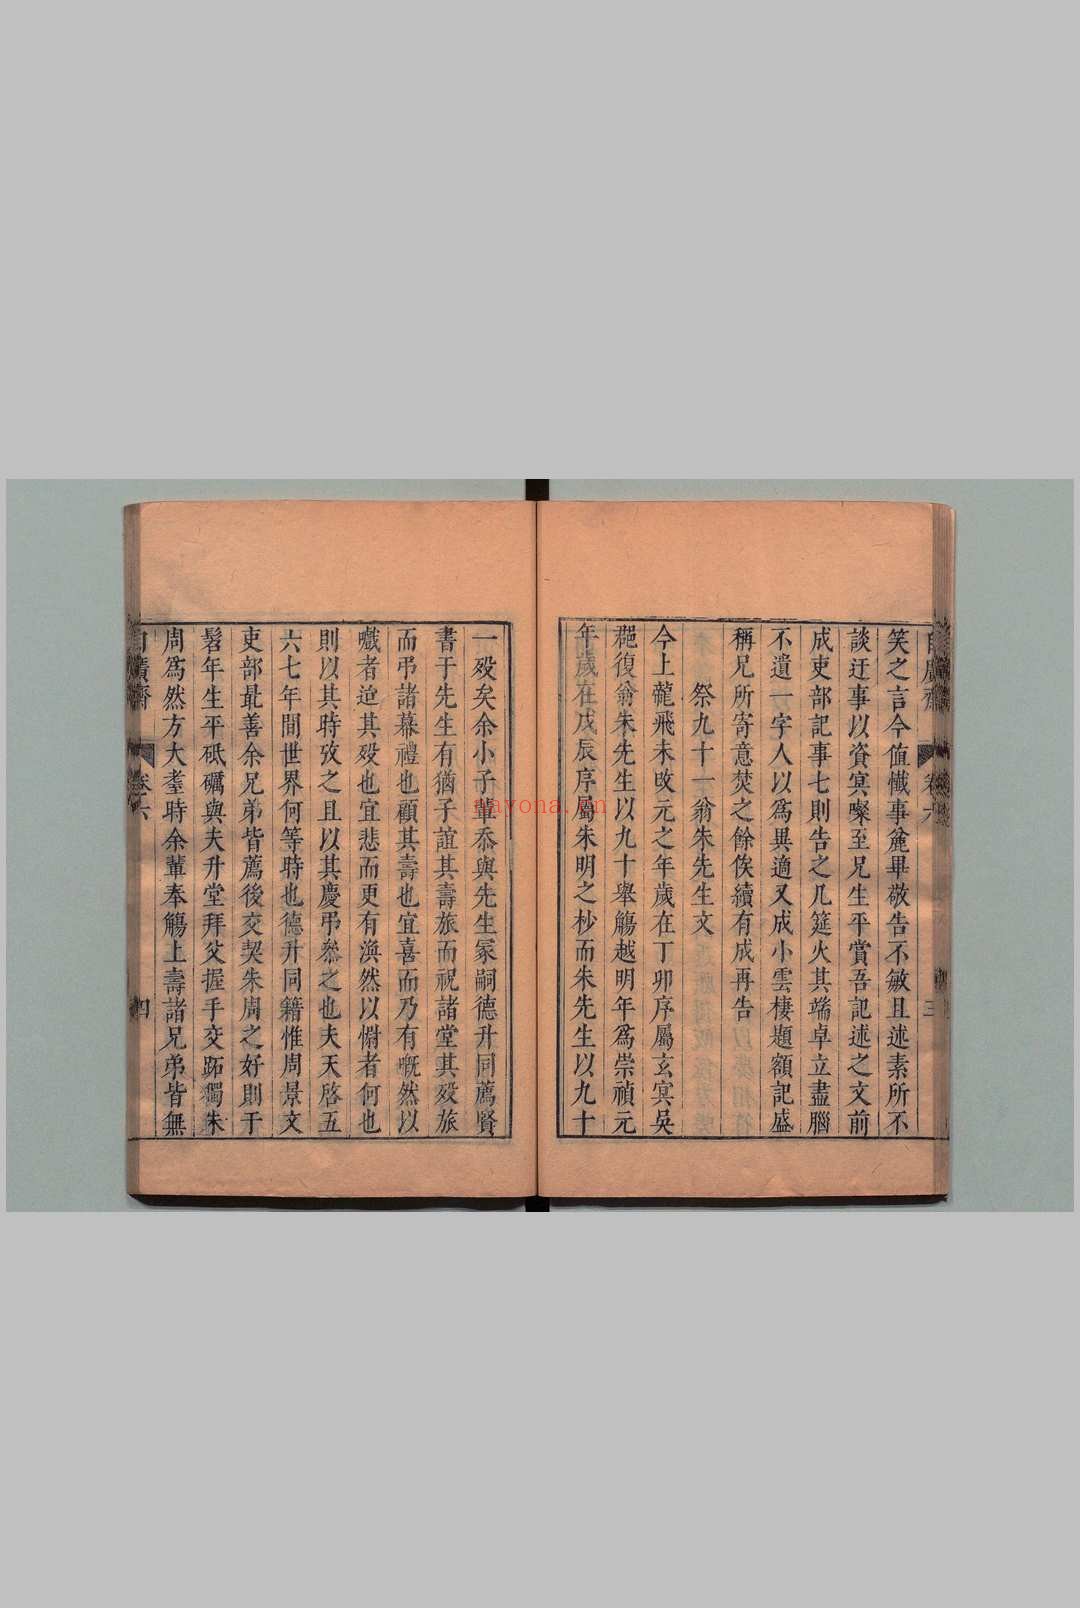 笑之言今值懺事麄畢敬告不敏且述素所不
談迂事以資冥噱至兄生平賞吾記述之文前
成吏部記事七則告之几筵火其端卓立盡腦
不遺一字人以為異適又成小雲棲題額記盛
稱兄所寄意焚之餘俟續有成再告
祭九十一翁朱先生文
今上龍飛未改元之年歲在丁卯序屬玄冥吳
龝復翁朱先生以九十舉觴越明年為崇禎元
年歲在戊辰序屬朱明之杪而朱先生以九十
一歿矣余小子輩忝與先生冢嗣德升同薦賢
書于先生有猶子誼其壽旅而祝諸堂其歿旅
而弔諸幕禮也顧其壽也宜喜而乃有嘅然以
嘅者迨其歿也宜悲而更有渙然以慰者何也
則以其時攷之且以其慶弔叅之也夫天啓五
六七年間世界何等時也德升同籍惟周景文
吏部最善余兄弟皆薦後交契朱周之好則于
髫年生平砥礪與夫升堂拜父握手交跖獨朱
周為然方大耋時余輩奉觴上壽諸兄弟皆無
自廣齋
卷六
三
自廣齋
卷六
四
nayona.cn